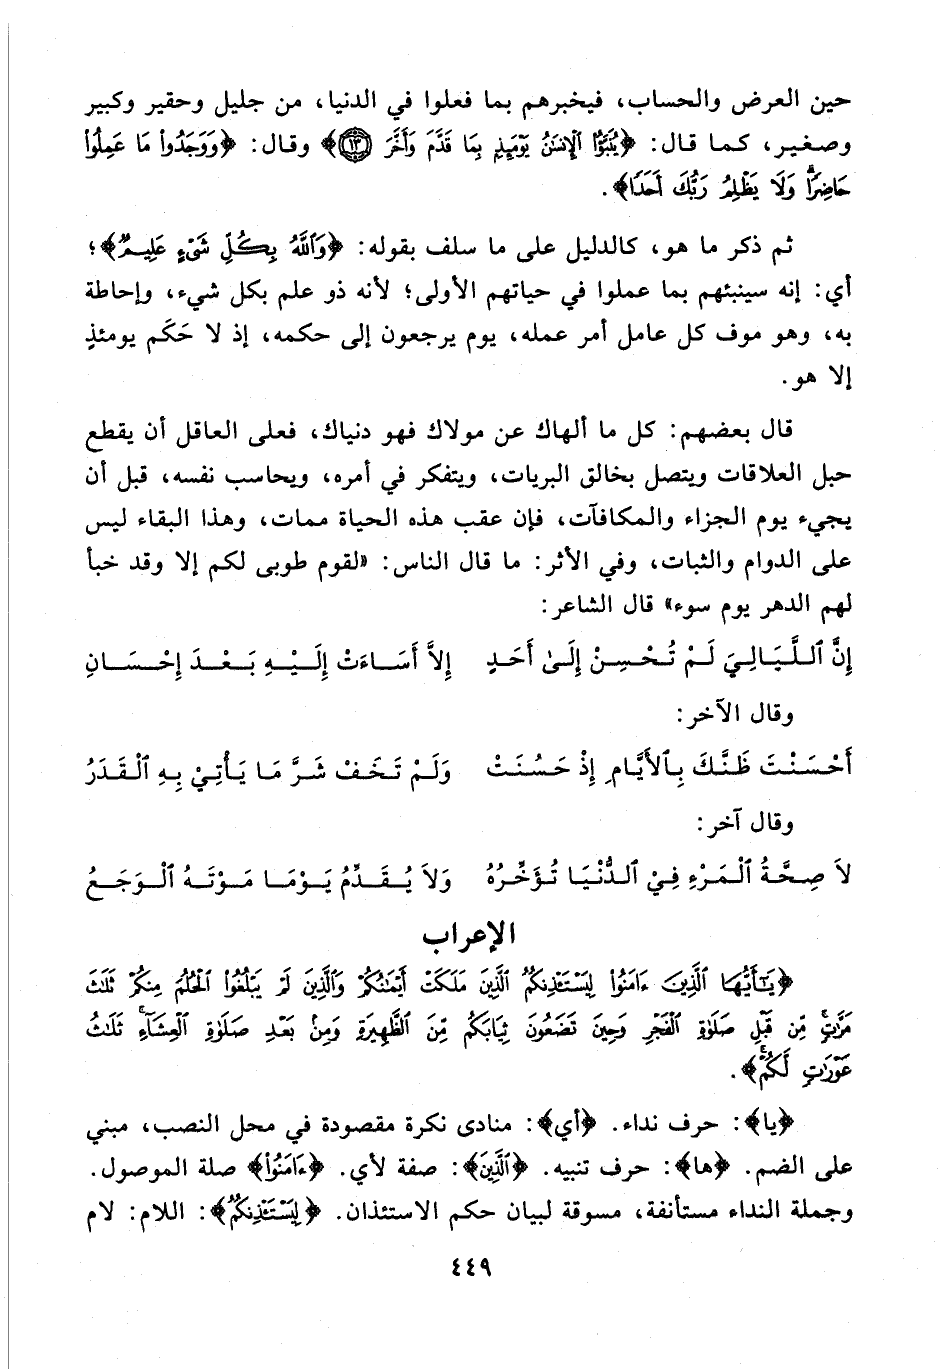 حين العرض والحساب، فيخبرهم بما فعلوا في الدنيا، من جليل وحقير وكبير
وصغير، كما قال: ﴿يُنَبَّؤُاْ ٱلْإِنسَٰنُ يَوْمَئِذٍۭ بِمَا قَدَّمَ وَأَخَّرَ ١٣﴾ وقال: ﴿وَوَجَدُواْ مَا عَمِلُواْ
حَاضِرًاۗ وَلَا يَظْلِمُ رَبُّكَ أَحَدًا﴾.
ثم ذكر ما هو، كالدليل على ما سلف بقوله: ﴿وَٱللَّهُ بِكُلِّ شَىْءٍ عَلِيمٌۢ﴾؛
أي: إنه سينبئهم بما عملوا في حياتهم الأولى؛ لأنه ذو علم بكل شيء، وإحاطة
به، وهو موف كل عامل أمر عمله، يوم يرجعون إلى حكمه، إذ لا حَكَم يومئذٍ
إلا هو.
قال بعضهم: كل ما ألهاك عن مولاك فهو دنياك، فعلى العاقل أن يقطع
حبل العلاقات ويتصل بخالق البريات، ويتفكر في أمره، ويحاسب نفسه، قبل أن
يجيء يوم الجزاء والمكافآت، فإن عقب هذه الحياة ممات، وهذا البقاء ليس
على الدوام والثبات، وفي الأثر: ما قال الناس: «لقوم طوبى لكم إلا وقد خبأ
لهم الدهر يوم سوء» قال الشاعر:
إِنَّ ٱللَّيَالِيَ لَمْ تُحْسِنْ إِلَىٰ أَحَدٍ إِلاَّ أَسَاءَتْ إِلَيْهِ بَعْدَ إِحْسَانِ
وقال الآخر:
أَحْسَنْتَ ظَنَّكَ بِٱلأَيَّامِ إِذْ حَسُنَتْ وَلَمْ تَخَفْ شَرَّ مَا يَأْتِيْ بِهِ ٱلْقَدَرُ
وقال آخر:
لاَ صِحَّةُ ٱلْمَرْءِ فِيْ ٱلدُّنْيَا تُؤَخِّرُهُ وَلاَ يُقَدِّمُ يَوْمَا مَوْتَهُ ٱلْوَجَعُ
الإعراب
﴿يَٰٓأَيُّهَا ٱلَّذِينَ ءَامَنُواْ لِيَسْتَـْٔذِنكُمُ ٱلَّذِينَ مَلَكَتْ أَيْمَٰنُكُمْ وَٱلَّذِينَ لَمْ يَبْلُغُواْ ٱلْحُلُمَ مِنكُمْ ثَلَٰثَ
مَرَّٰتٍۚ مِّن قَبْلِ صَلَوٰةِ ٱلْفَجْرِ وَحِينَ تَضَعُونَ ثِيَابَكُم مِّنَ ٱلظَّهِيرَةِ وَمِنۢ بَعْدِ صَلَوٰةِ ٱلْعِشَآءِۚ ثَلَٰثُ
عَوْرَٰتٍ لَّكُمْۚ﴾.
﴿يا﴾: حرف نداء. ﴿أي﴾: منادى نكرة مقصودة في محل النصب، مبني
على الضم. ﴿ها﴾: حرف تنبيه. ﴿ٱلَّذِينَ﴾: صفة لأي. ﴿ءَامَنُواْ﴾ صلة الموصول.
وجملة النداء مستأنفة، مسوقة لبيان حكم الاستئذان. ﴿لِيَسْتَـْٔذِنكُمُ﴾: اللام: لام
٤٤٩